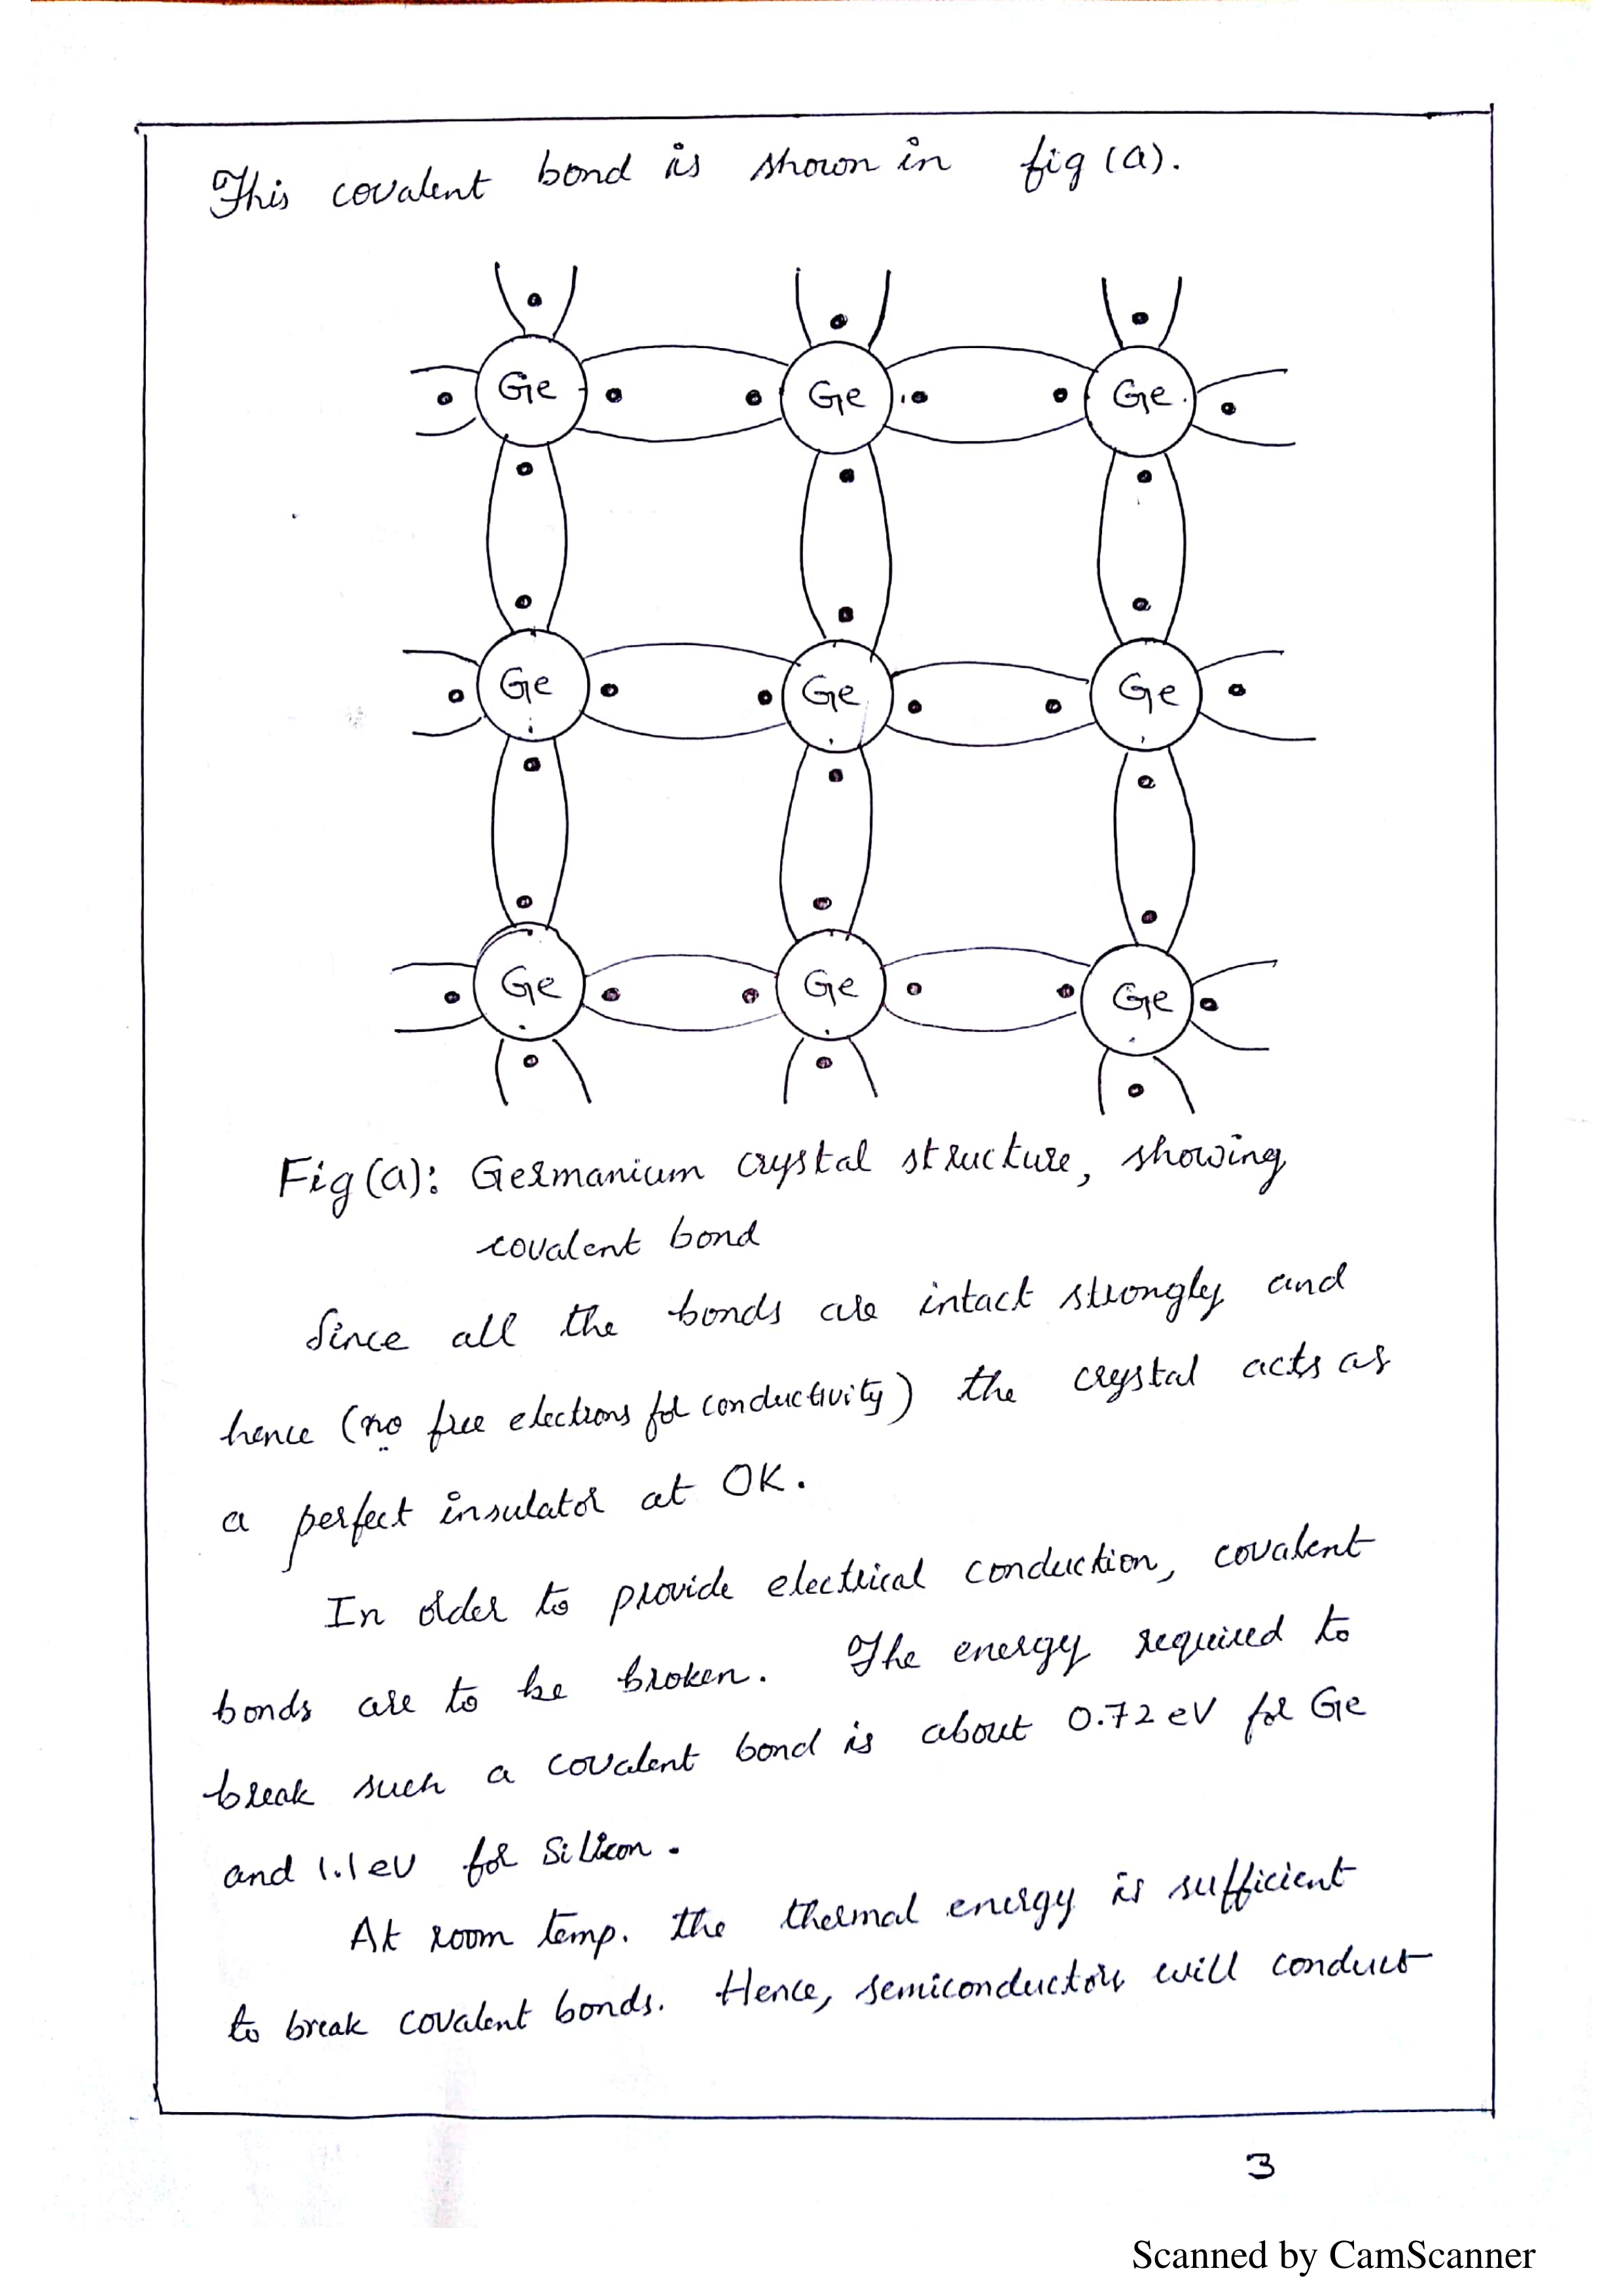 This covalent bond is shown in fig (a).
Ge Ge Ge
Ge Ge Ge
Ge Ge Ge
Fig (a): Germanium crystal structure, showing
covalent bond
Since all the bonds are intact strongly and
hence (no free electrons for conductivity) the crystal acts as
a perfect insulator at 0K.
In order to provide electrical conduction, covalent
bonds are to be broken. The energy required to
break such a covalent bond is about 0.72 eV for Ge
and 1.1 eV for Silicon.
At room temp. the thermal energy is sufficient
to break covalent bonds. Hence, semiconductors will conduct
3
Scanned by CamScanner